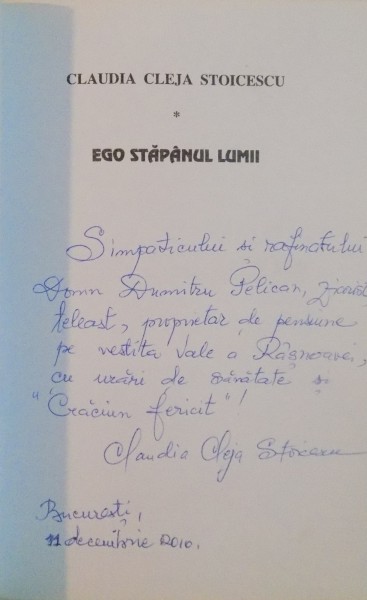 CLAUDIA CLEJA STOICESCU
*
EGO STĂPÂNUL LUMII
Simpaticului si rafinatului
Domn Dumitru Pelican, ziarist,
teleast, proprietar de pensiune
pe vestita Vale a Râșnoavei,
cu urări de sănătate și
"Crăciun fericit"!
Claudia Cleja Stoicescu
București,
11 decembrie 2010.